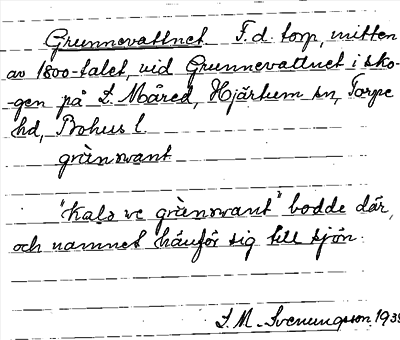 Grunnevattnet F.d. torp, mitten
av 1800-talet, vid Grunnevattnet i sko-
-gen på L. Måred, Hjärtum sn, Torpe
hd, Bohus l.
grùnsvant
"Kals ve grùnsvant" bodde där,
och namnet hänför sig till sjön.
S. M. Svenungsson 1938